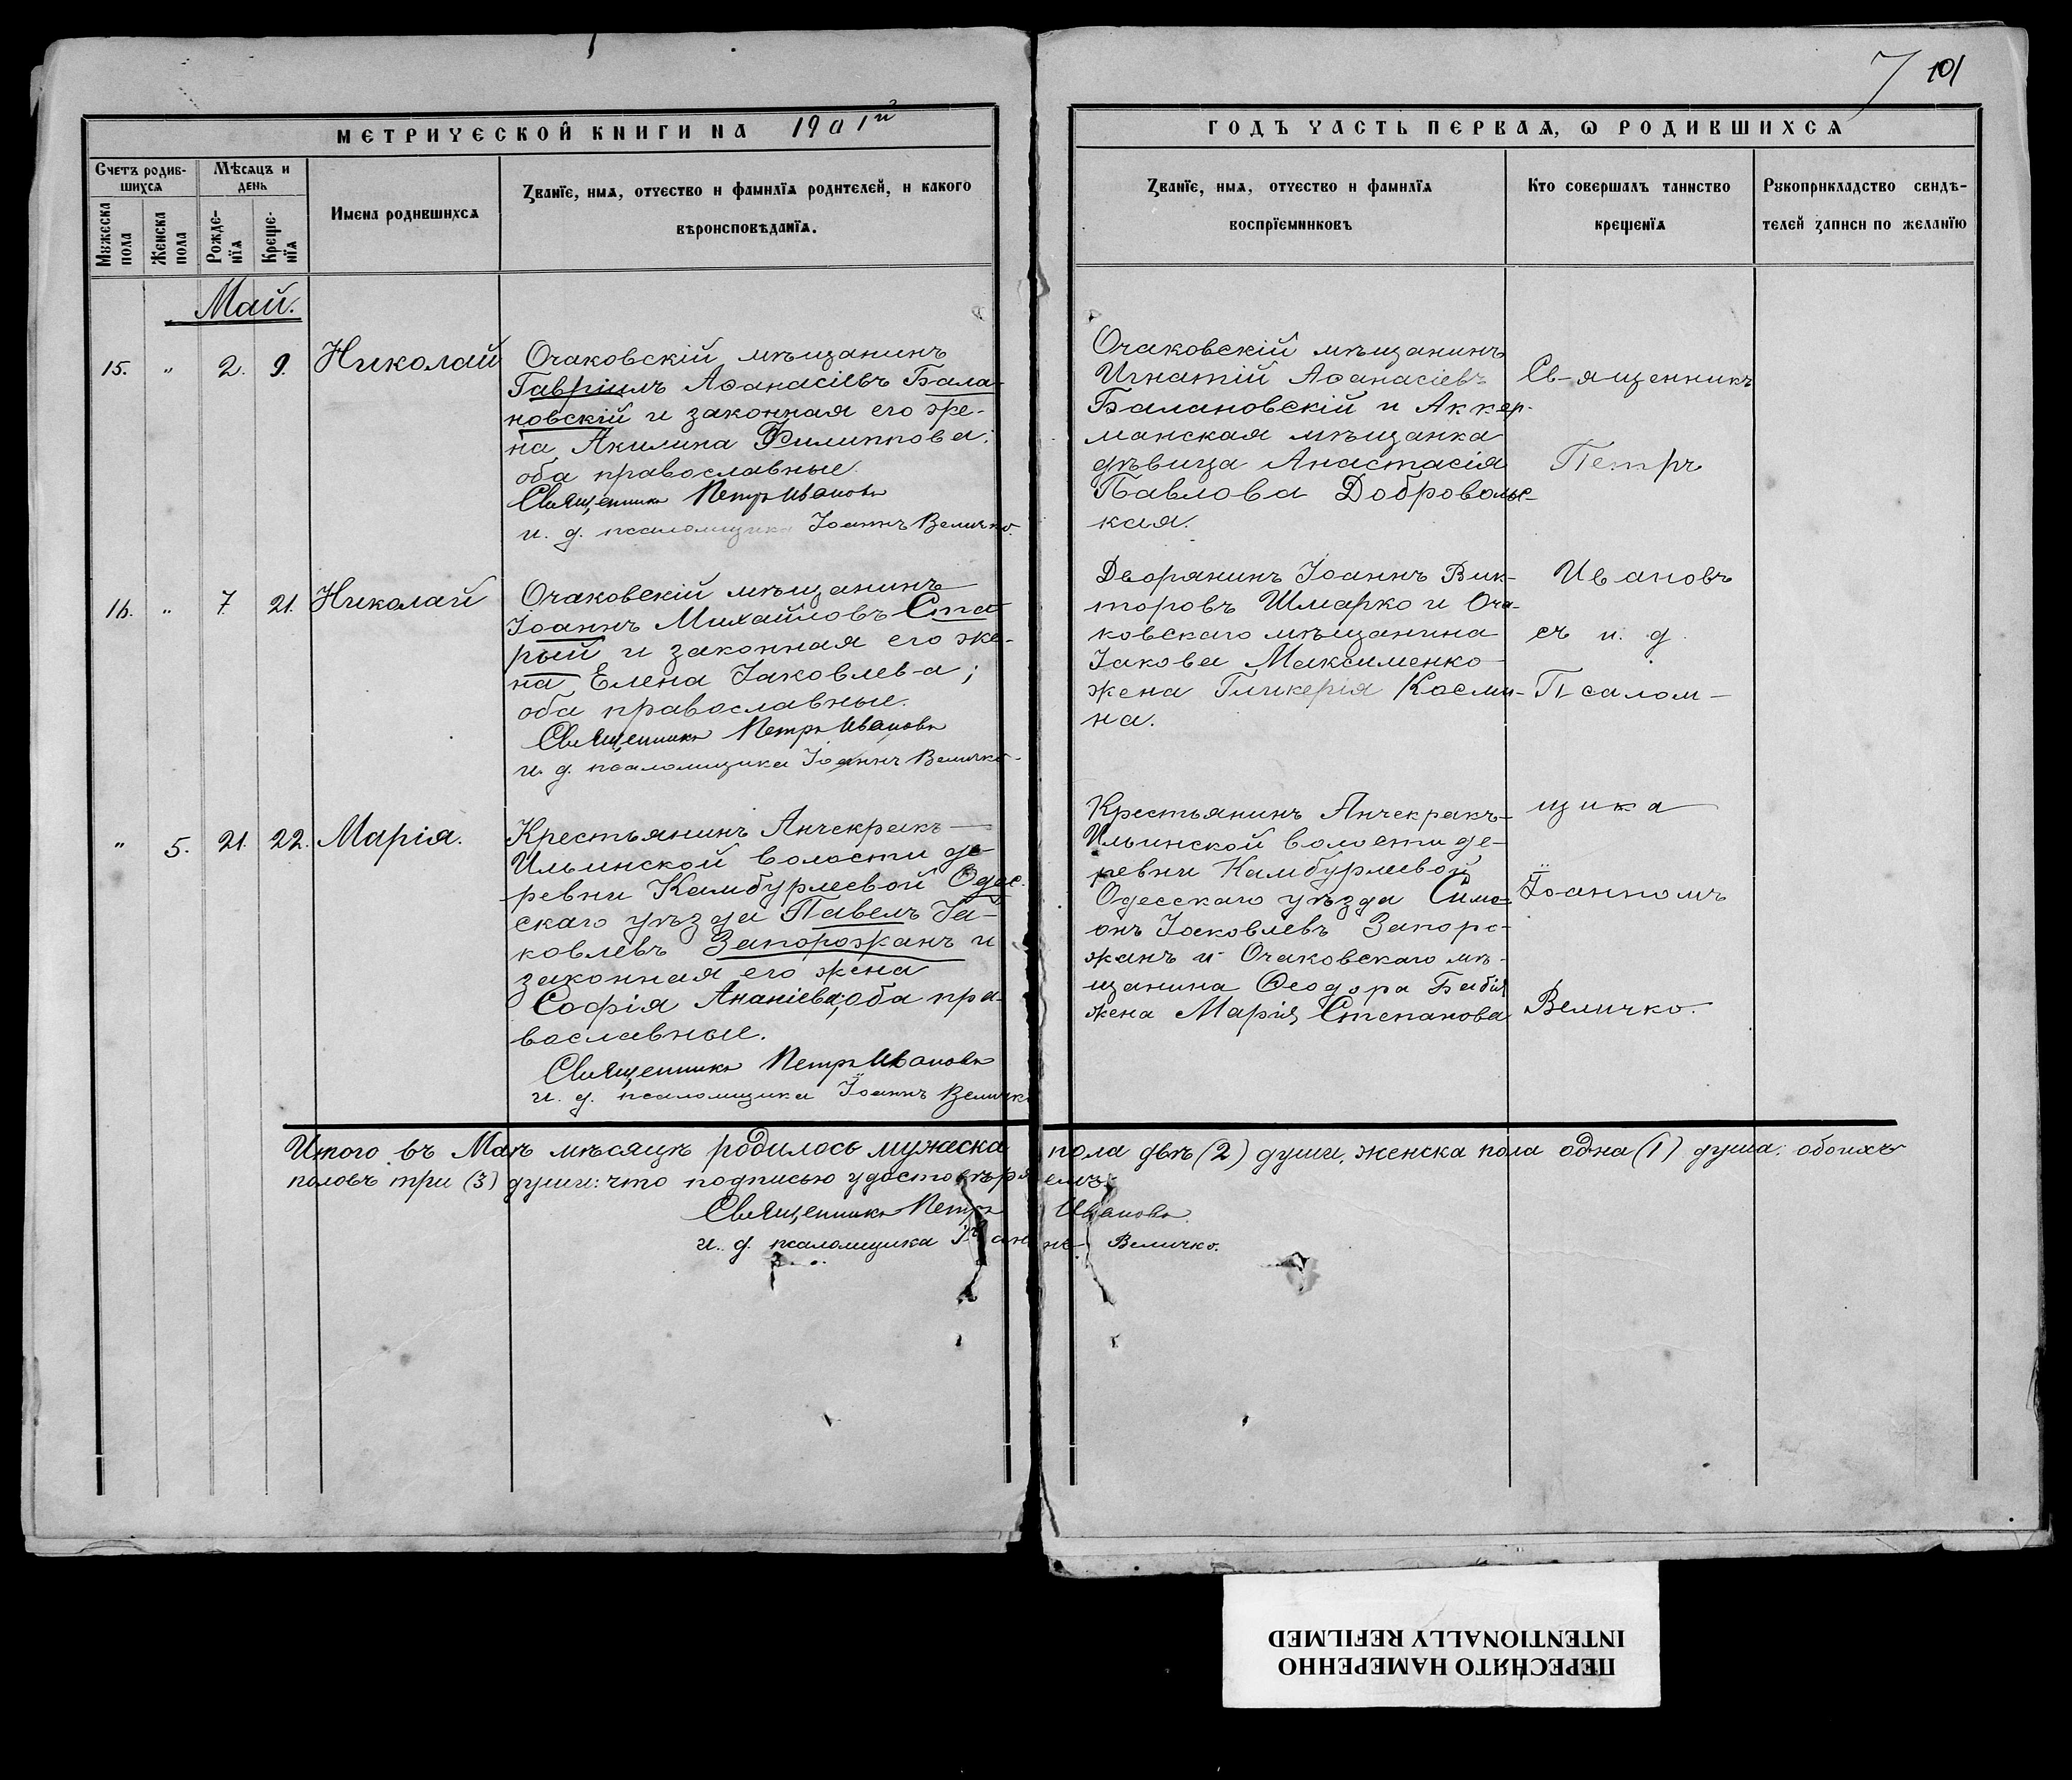 7 101
МЕТРИЧЕСКОЙ КНИГИ НА 1901й
ГОДЪ ЧАСТЬ ПЕРВАЯ, Ѡ РОДИВШИХСЯ
Счетъ родив-
шихся
Мѣсяцъ и
день
Мужеска
пола
Женска
пола
Рожде-
нїя
Креще-
нїя
Имена родившихся
Званїе, имя, отчество и фамилїя родителей, и какого
вѣроисповѣданїя.
Званїе, имя, отчество и фамилїя
воспрїемниковъ
Кто совершалъ таинство
крещенїя
Рукоприкладство свидѣ-
телей записи по желанїю
Май.
15. " 2. 9. Николай
Очаковскій мѣщанинъ
Гавріилъ Аѳанасіевъ Бала-
новскій и законная его же-
на Акилина Филиппова;
оба православные.
Священникъ Петръ Ивановъ
и. д. псаломщика Іоаннъ Величко.
Очаковскій мѣщанинъ
Игнатій Аѳанасіевъ
Балановскій и Аккер-
манская мѣщанка
дѣвица Анастасія
Павлова Добровольс-
кая.
16. " 7. 21. Николай
Очаковскій мѣщанинъ
Іоаннъ Михайловъ Ста-
рый и законная его же-
на Елена Іаковлева;
оба православные.
Священникъ Петръ Ивановъ
и. д. псаломщика Іоаннъ Величко.
Дворянинъ Іоаннъ Вик-
торовъ Шмарко и Оча-
ковскаго мѣщанина
Іакова Максименко
жена Гликерія Косми-
на.
" 5. 21. 22. Марія.
Крестьянинъ Анчекракъ-
Ильинской волости де-
ревни Камбурлеевой Одес-
скаго уѣзда Павелъ Іа-
ковлевъ Запорожанъ и
законная его жена
Софія Ананіева; оба пра-
вославные.
Священникъ Петръ Ивановъ
и. д. псаломщика Іоаннъ Величко
Крестьянинъ Анчекракъ-
Ильинской волости де-
ревни Камбурлеевой
Одесскаго уѣзда Симе-
онъ Іаковлевъ Запоро-
жанъ и Очаковскаго мѣ-
щанина Ѳеодора Бабія
жена Марія Степанова
Священникъ
Петръ
Ивановъ
съ и. д.
Псалом-
щика
Іоанномъ
Величко.
Итого въ Маѣ мѣсяцѣ родилось мужеска пола двѣ (2) души, женска пола одна (1) душа; обоихъ
половъ три (3) души: что подписью удостовѣряемъ:
Священникъ Петръ Ивановъ.
и. д. псаломщика Іоаннъ Величко.
ПЕРЕСНЯТО НАМЕРЕННО
INTENTIONALLY REFILMED